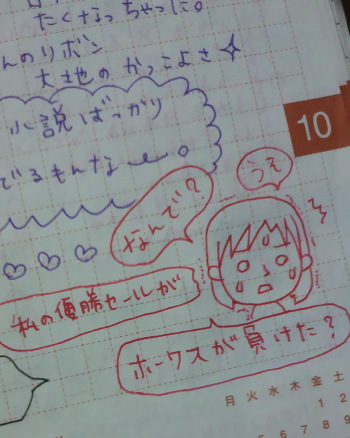 たくなっちゃった。
んのリボン
大地のかっこよさ
小説ばっかり
でるもんなー。
10
うそ
なんで?
私の優勝セールが
ホークスが負けた?
月 火 水 木 金 土
1 2
6 7 8 9